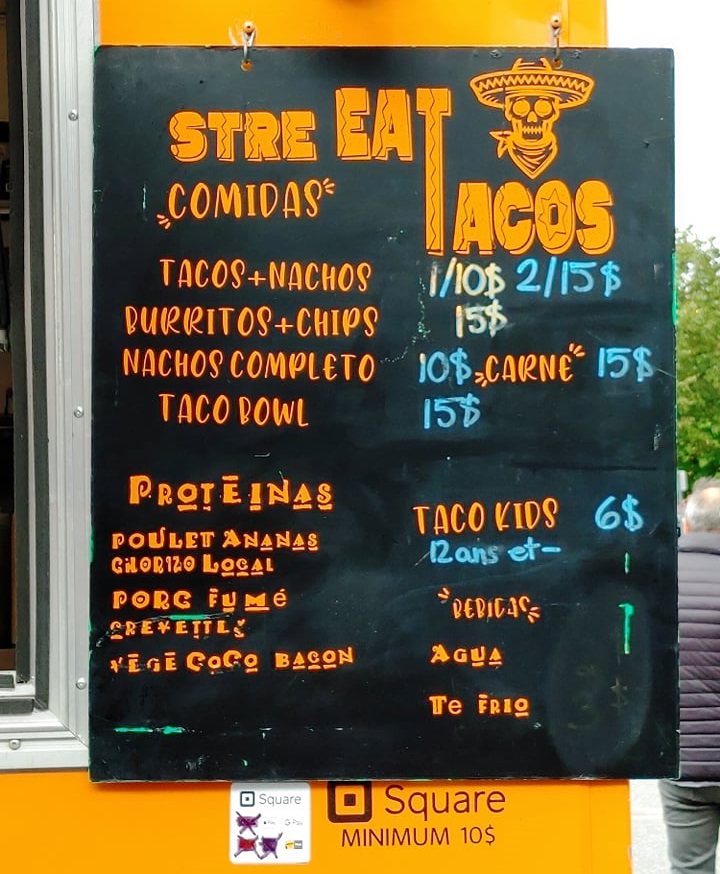 STREEAT
TACOS
COMIDAS
TACOS+NACHOS 1/10$ 2/15$
BURRITOS+CHIPS 15$
NACHOS COMPLETO 10$ CARNE 15$
TACO BOWL 15$
PROTĒINAS
POULET ANANAS
CHORIZO LOCAL
PORC FUMÉ
CREVETTES
VÉGÉ COCO BACON
TACO KIDS 6$
12 ans et -
BEBIDAS
AGUA
TE FRIO
Square
Square
MINIMUM 10$